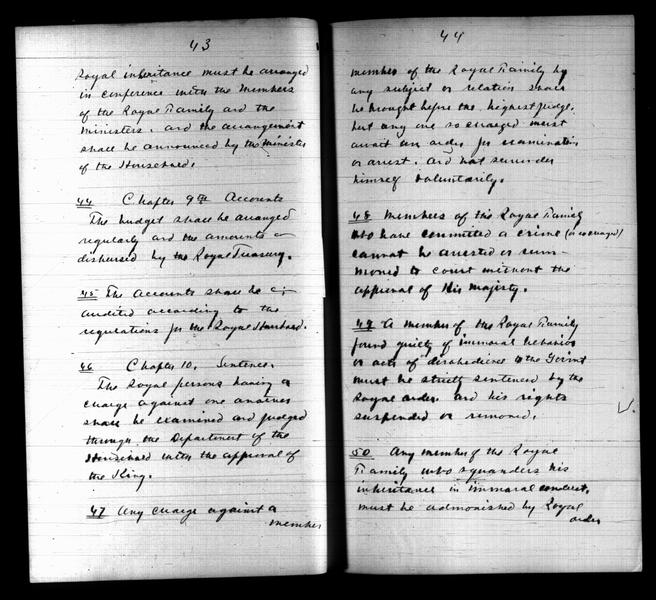 43
Royal inheritance must be arranged
in conference with the members
of the Royal Family and the
ministers. and the arrangement
shall be announced by the minister
of the Household.
44 Chapter 9th Accounts
The budget shall be arranged
regularly and the amounts
disbursed by the Royal Treasury.
45 The Accounts shall be
audited according to the
regulations for the Royal Household.
46 Chapter 10. Sentences.
The Royal persons having a
charge against one another
shall be examined and judged
through the Department of the
Household with the approval of
the King.
47 Any charge against a
member
44
member of the Royal Family by
any subject or relation shall
be brought before the highest judge.
but any one so charged must
await an order for examination
or arrest. and not surrender
himself voluntarily.
48 Members of the Royal Family
who have committed a crime (or so charged)
cannot be arrested or sum-
moned to court without the
approval of His Majesty.
49 A member of the Royal Family
found guilty of immoral behavior
or acts of disobedience to the Govmt
must be strictly sentenced by the
Royal order. and his rights
suspended or removed.
50 Any member of the Royal
Family who squanders his
inheritance in immoral conduct,
must be admonished by Royal
order